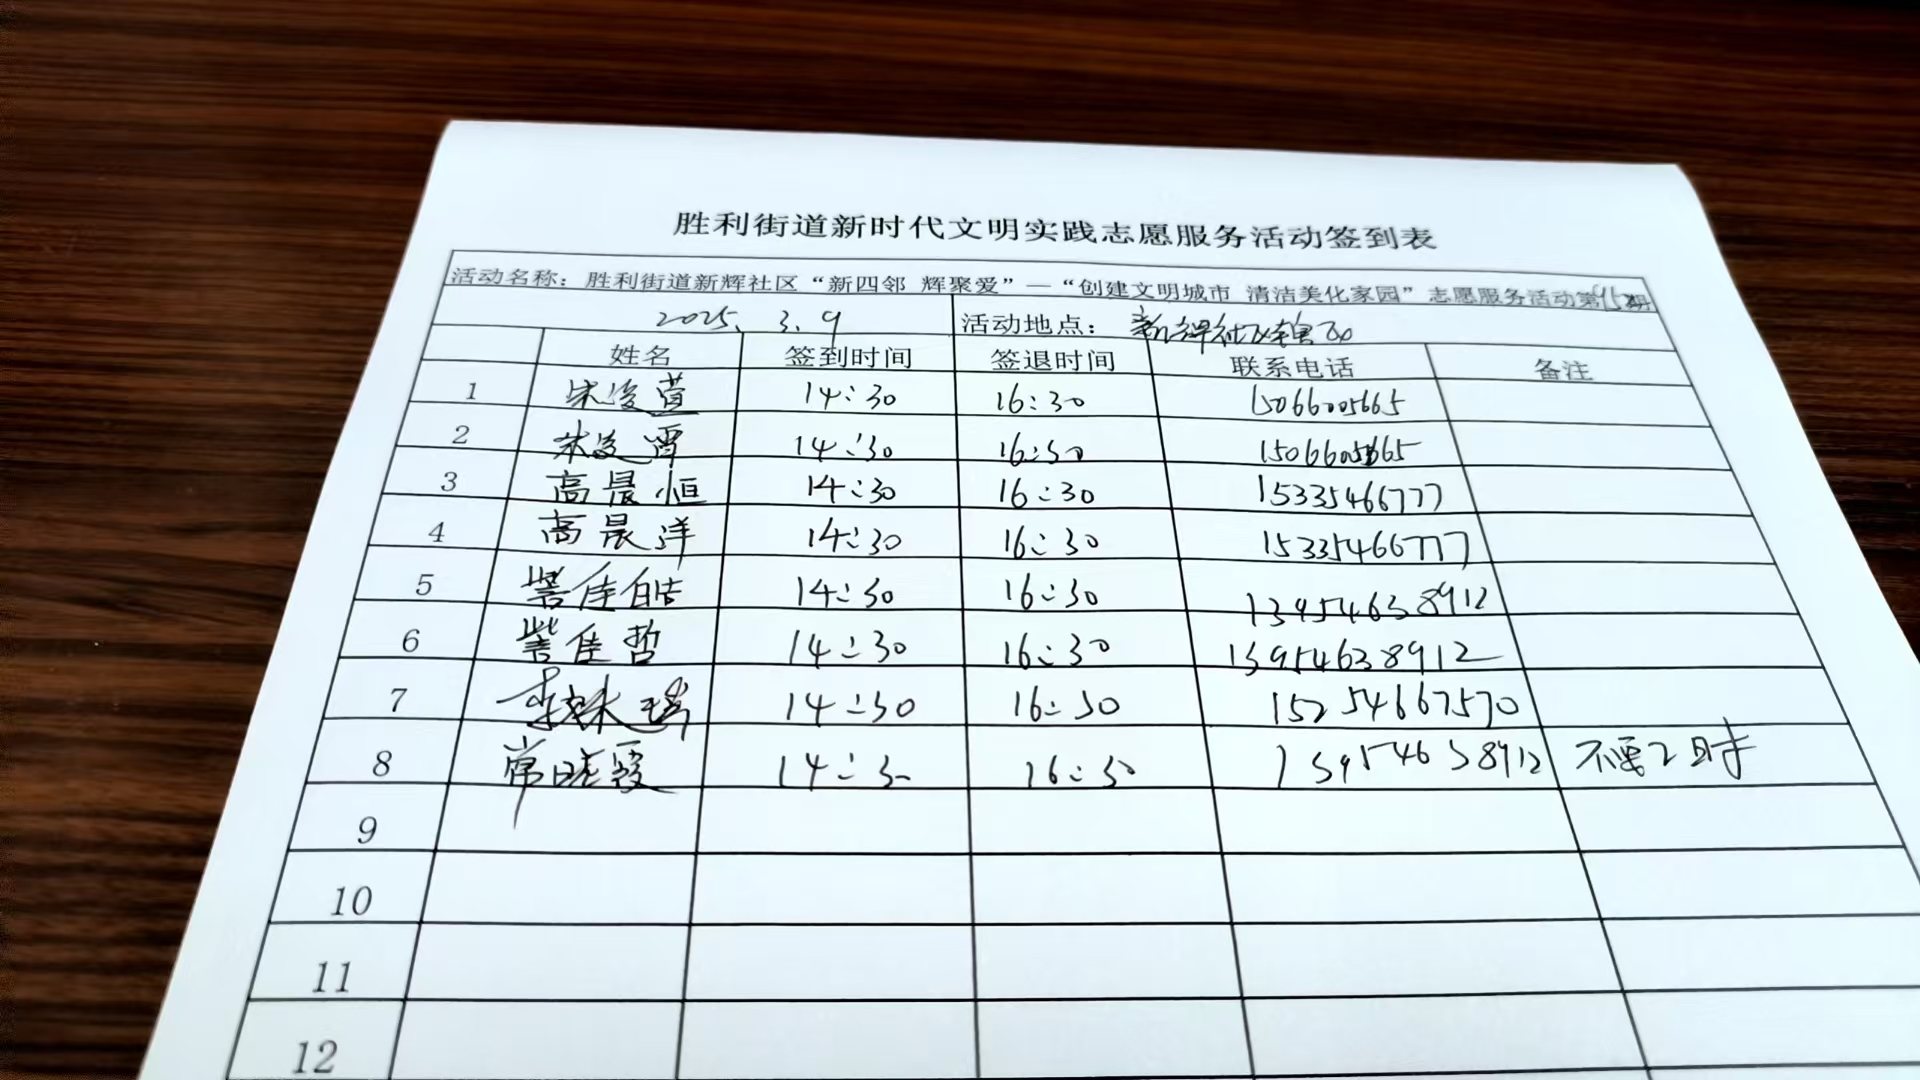 胜利街道新时代文明实践志愿服务活动签到表
活动名称：胜利街道新辉社区“新四邻 辉聚爱”—“创建文明城市 清洁美化家园”志愿服务活动第 期
2025. 3. 9 活动地点：新辉社区辖区
姓名 签到时间 签退时间 联系电话 备注
1 宋俊萱 14:30 16:30 15066005665
2 宋俊霄 14:30 16:30 15066005665
3 高晨恒 14:30 16:30 15335466777
4 高晨洋 14:30 16:30 15335466777
5 訾佳皓 14:30 16:30 13954638912
6 訾佳哲 14:30 16:30 13954638912
7 李 瑞 14:30 16:30 15254667570
8 常晓霞 14:30 16:30 13954638912 不要工时
9
10
11
12